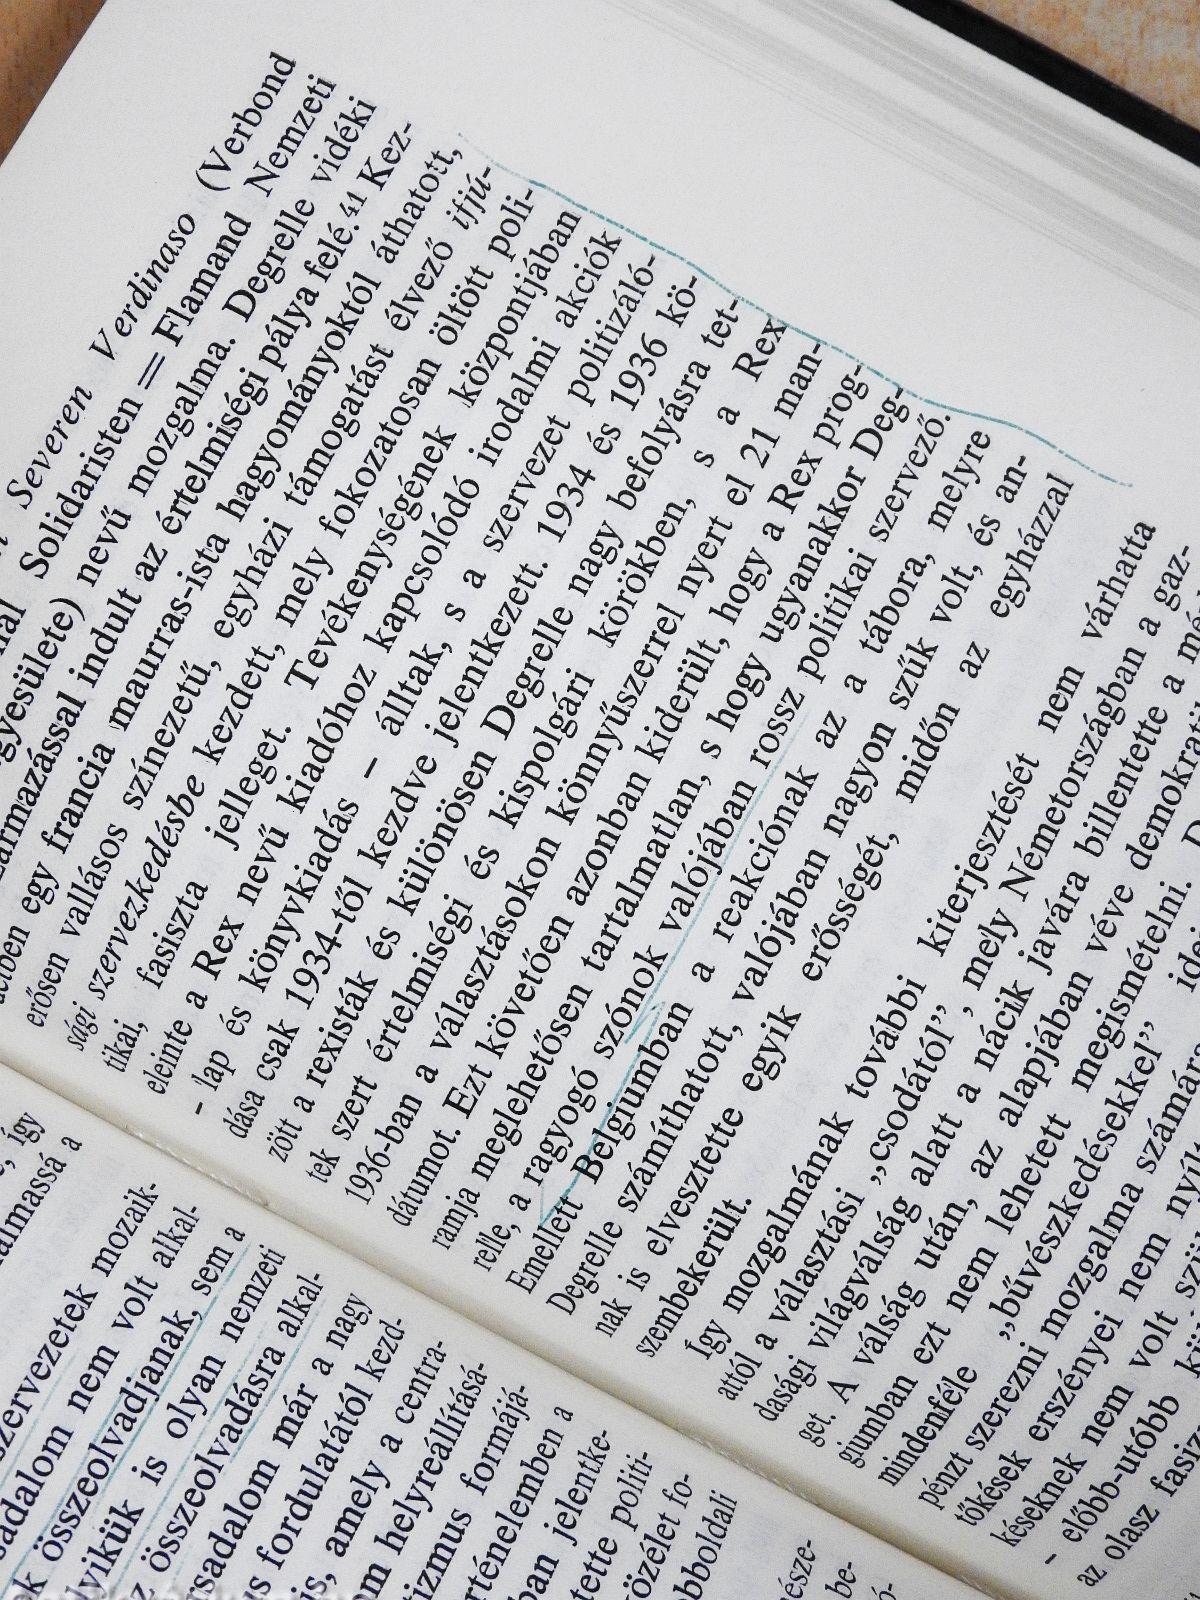 Severen Verdinaso (Verbond
Solidaristen = Flamand Nemzeti
nevű mozgalma. Degrelle vidéki
származással indult az értelmiségi pálya felé.41 Kez-
egy francia maurras-ista hagyományoktól áthatott,
erősen vallásos színezetű, egyházi támogatást élvező ifjú-
sági szervezkedésbe kezdett, mely fokozatosan öltött poli-
tikai, fasiszta jelleget. Tevékenységének központjában
eleinte a Rex nevű kiadóhoz kapcsolódó irodalmi akciók
– lap és könyvkiadás – álltak, s a szervezet politizáló-
dása csak 1934-től kezdve jelentkezett. 1934 és 1936 kö-
zött a rexisták és különösen Degrelle nagy befolyásra tet-
tek szert értelmiségi és kispolgári körökben, s a Rex
1936-ban a választásokon könnyűszerrel nyert el 21 man-
dátumot. Ezt követően azonban kiderült, hogy a Rex prog-
ramja meglehetősen tartalmatlan, s hogy ugyanakkor Deg-
relle, a ragyogó szónok valójában rossz politikai szervező.
Emellett Belgiumban a reakciónak az a tábora, melyre
Degrelle számíthatott, valójában nagyon szűk volt, és an-
nak is elvesztette egyik erősségét, midőn az egyházzal
szembekerült.
Így mozgalmának további kiterjesztését nem várhatta
attól a választási „csodától", mely Németországban a gaz-
dasági világválság alatt a nácik javára billentette a
get. A válság után, az alapjában véve
giumban ezt nem lehetett megismételni.
mindenféle „bűvészkedésekkel"
pénzt szerezni mozgalma számára
tőkések erszényei nem
késeknek nem volt
– előbb-utóbb
az olasz
így
a
szervezetek mozaik-
nem volt alkal-
összeolvadjanak, sem a
is olyan nemzeti
összeolvadásra alkal-
már a nagy
fordulatától kezd-
amely a centra-
helyreállítása-
formájá-
a
jelentke-
politi-
közélet fo-
be-